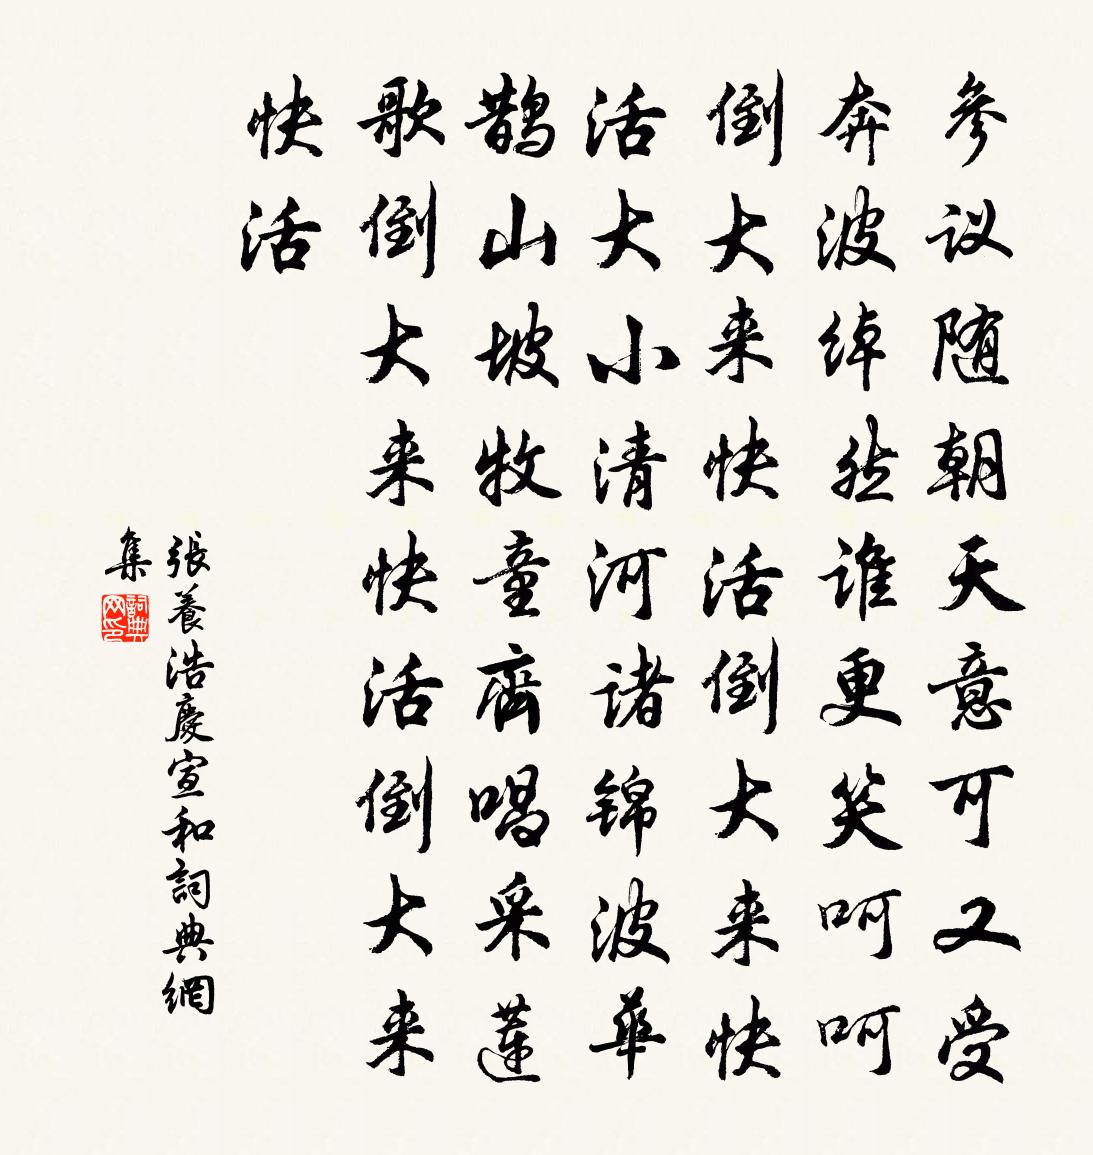 参议随朝天意可又受
奔波绰然谁更笑呵呵
倒大来快活倒大来快
活大小清河诸锦波華
鵲山坡牧童齊唱采蓮
歌倒大来快活倒大来
快活
張養浩慶宣和詞典網
集
詞典
网印